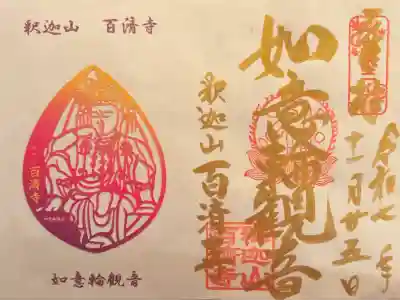 釈迦山　百済寺
百済寺
如意輪観音
奉拝
令和七年
十一月廿五日
如意輪観音
釈迦山百済寺